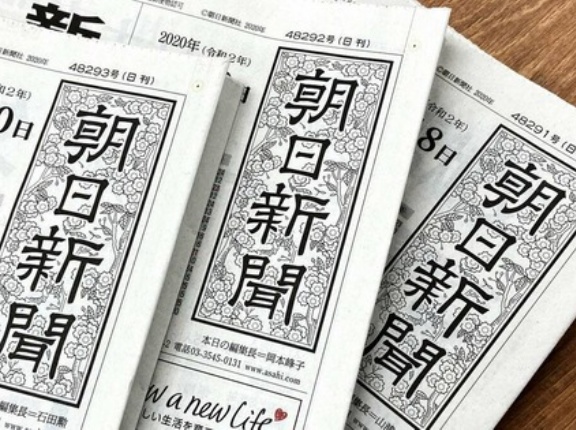 新
©朝日新聞社 2020年
2020年（令和2年）
48293号 (日刊)
0日
朝日新聞
編集長=石田勲
48292号 (日刊)
朝日新聞
本日の編集長=岡本峰子
電話03-3545-0131 www.asahi.com
w a new life
しい生活を
©朝日新聞社 2020年
令和2年)
8日
48291号 (日
朝日新聞